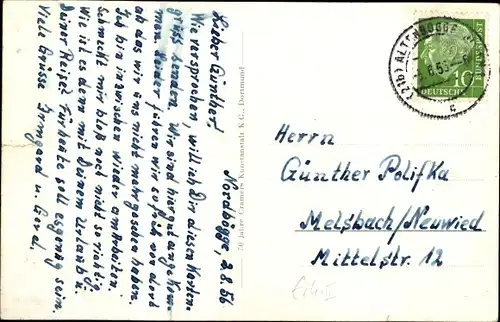 Nordbögge, 2.8.56
Lieber Günther!
Wie versprochen, will ich Dir diesen Karten-
gruss senden. Wir sind hier gut angekom-
men. Leider fuhren wir so früh von dort
ab das wir uns nicht mehr gesehen haben.
Ich bin inzwischen wieder am Arbeiten.
Schmeckt mir bloß noch nicht so richtig.
Wie ist es denn mit Deinem Urlaub u.
Deiner Reise? Für heute soll es genug sein.
Viele Grüsse Irmgard u. Gerd.
70 Jahre Cramers Kunstanstalt K.G., Dortmund
(21b) ALTENBÖGGE
DEUTSCHE BUNDESPOST
10
Herrn
Günther Polifka
Melsbach/Neuwied
Mittelstr. 12